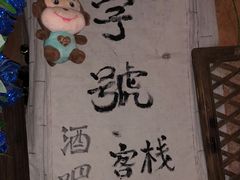 字號
客栈
酒吧